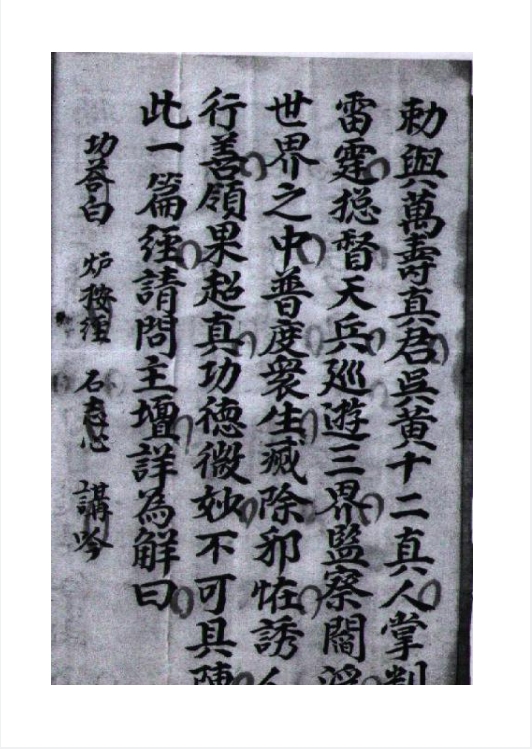 勅與萬壽真君吳黃十二真人掌判
雷霆捴督天兵巡遊三界監察閻浮
世界之中普度衆生滅除邪恠誘人
行善領果超真功德微妙不可具陳
此一篇經請問主壇詳為解曰
功荅白 炉按經 石志心 講吟